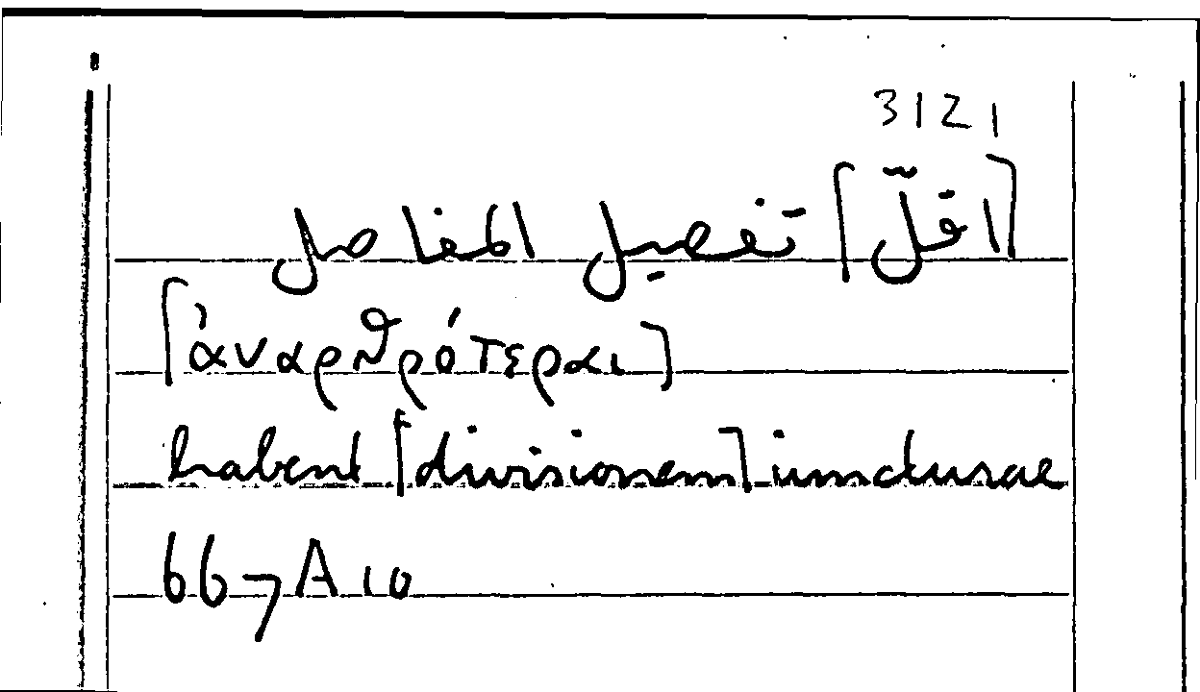 3121
[اقلّ] تفصيل المفاصل
[ἀναρθρότεραι]
habent [divisionem] iuncturae
667A10